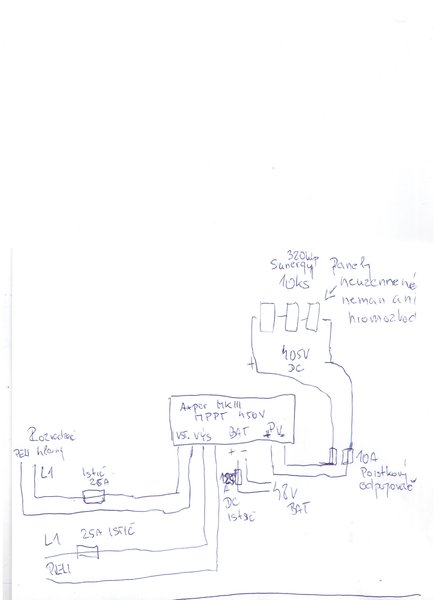 320Wp
Sunergy Panely
10ks neuzemnené
nemam ani
hromozvod
+
405V
DC
Axpert MKIII
MPPT 450V
VS. Výs BAT PV
+ -
Rozvadeč
PEN hlavný
L1
Istič
25A
125
A
DC
istič
48V
BAT
10A
Poistkový
odpojovač
L1 25A ISTIČ
PEN